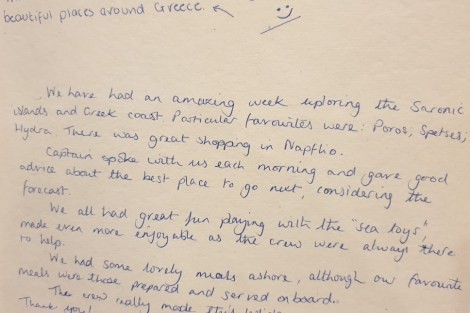 beautiful places around Greece.
We have had an amazing week exploring the Saronic
islands and Greek coast Particular favourites were: Poros, Spetses,
Hydra. There was great shopping in Napflio.
Captain spoke with us each morning and gave good
advice about the best place to go next, considering the
forecast.
We all had great fun playing with the "sea toys",
made even more enjoyable as the crew were always there
to help.
We had some lovely meals ashore, although our favourite
meals were those prepared and served onboard.
The crew really made this
Thank you!